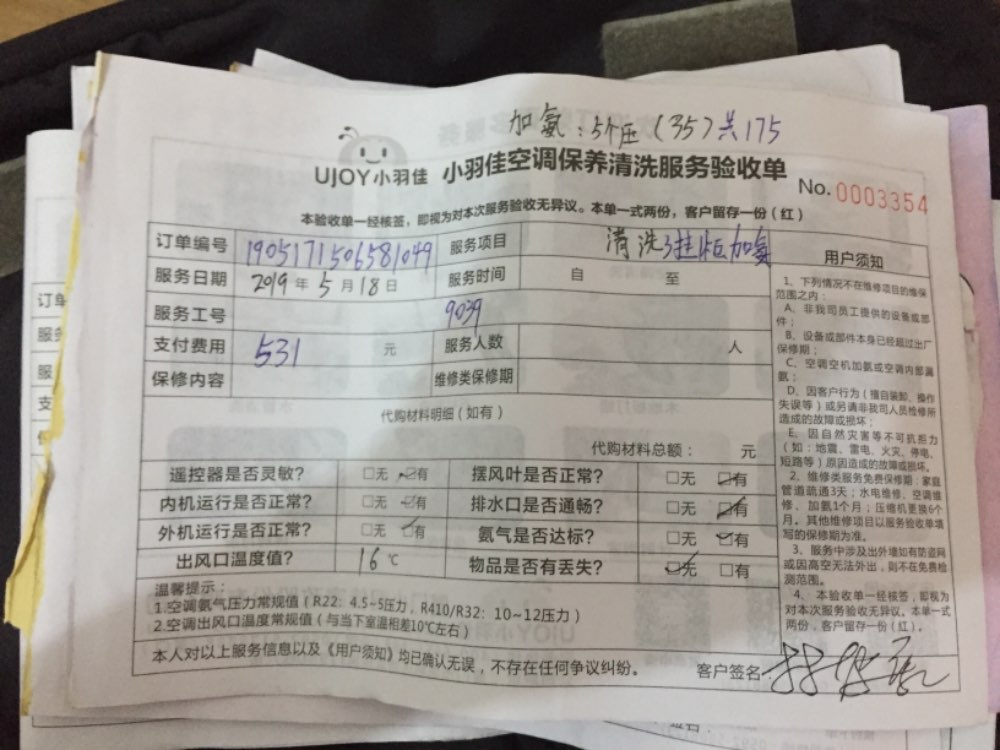 加氨：5个压（35）共175
UJOY小羽佳 小羽佳空调保养清洗服务验收单
No. 0003354
本验收单一经核签，即视为对本次服务验收无异议。本单一式两份，客户留存一份（红）
订单编号 1905171506581049 服务项目 清洗3挂1柜加氨
服务日期 2019年5月18日 服务时间 自 至
服务工号 9039
支付费用 531 元 服务人数 人
保修内容 维修类保修期
代购材料明细（如有）
代购材料总额： 元
遥控器是否灵敏？ □无 □有 摆风叶是否正常？ □无 □有
内机运行是否正常？ □无 □有 排水口是否通畅？ □无 □有
外机运行是否正常？ □无 □有 氨气是否达标？ □无 □有
出风口温度值？ 16℃ 物品是否有丢失？ □无 □有
温馨提示：
1.空调氨气压力常规值（R22：4.5~5压力，R410/R32：10~12压力）
2.空调出风口温度常规值（与当下室温相差10℃左右）
本人对以上服务信息以及《用户须知》均已确认无误，不存在任何争议纠纷。
客户签名
用户须知
1、下列情况不在维修项目的维保
范围之内：
A、非我司员工提供的设备或部
件；
B、设备或部件本身已经超过出厂
保修期；
C、空调空机加氨或空调内部漏
氨；
D、因客户行为（擅自装卸、操作
失误等）或另请非我司人员检修所
造成的故障或损坏；
E、因自然灾害等不可抗拒力
（如：地震、雷电、火灾、停电、
短路等）原因造成的故障或损坏。
2、维修类服务免费保修期：家庭
管道疏通3天；水电维修、空调维
修、加氨1个月；压缩机更换6个
月。其他维修项目以服务验收单填
写的保修期为准。
3、服务中涉及出外墙如有防盗网
或因高空无法外出，则不在免费检
测范围。
4、本验收单一经核签，即视为
对本次服务验收无异议。本单一式
两份，客户留存一份（红）。
订单
服务
服
支